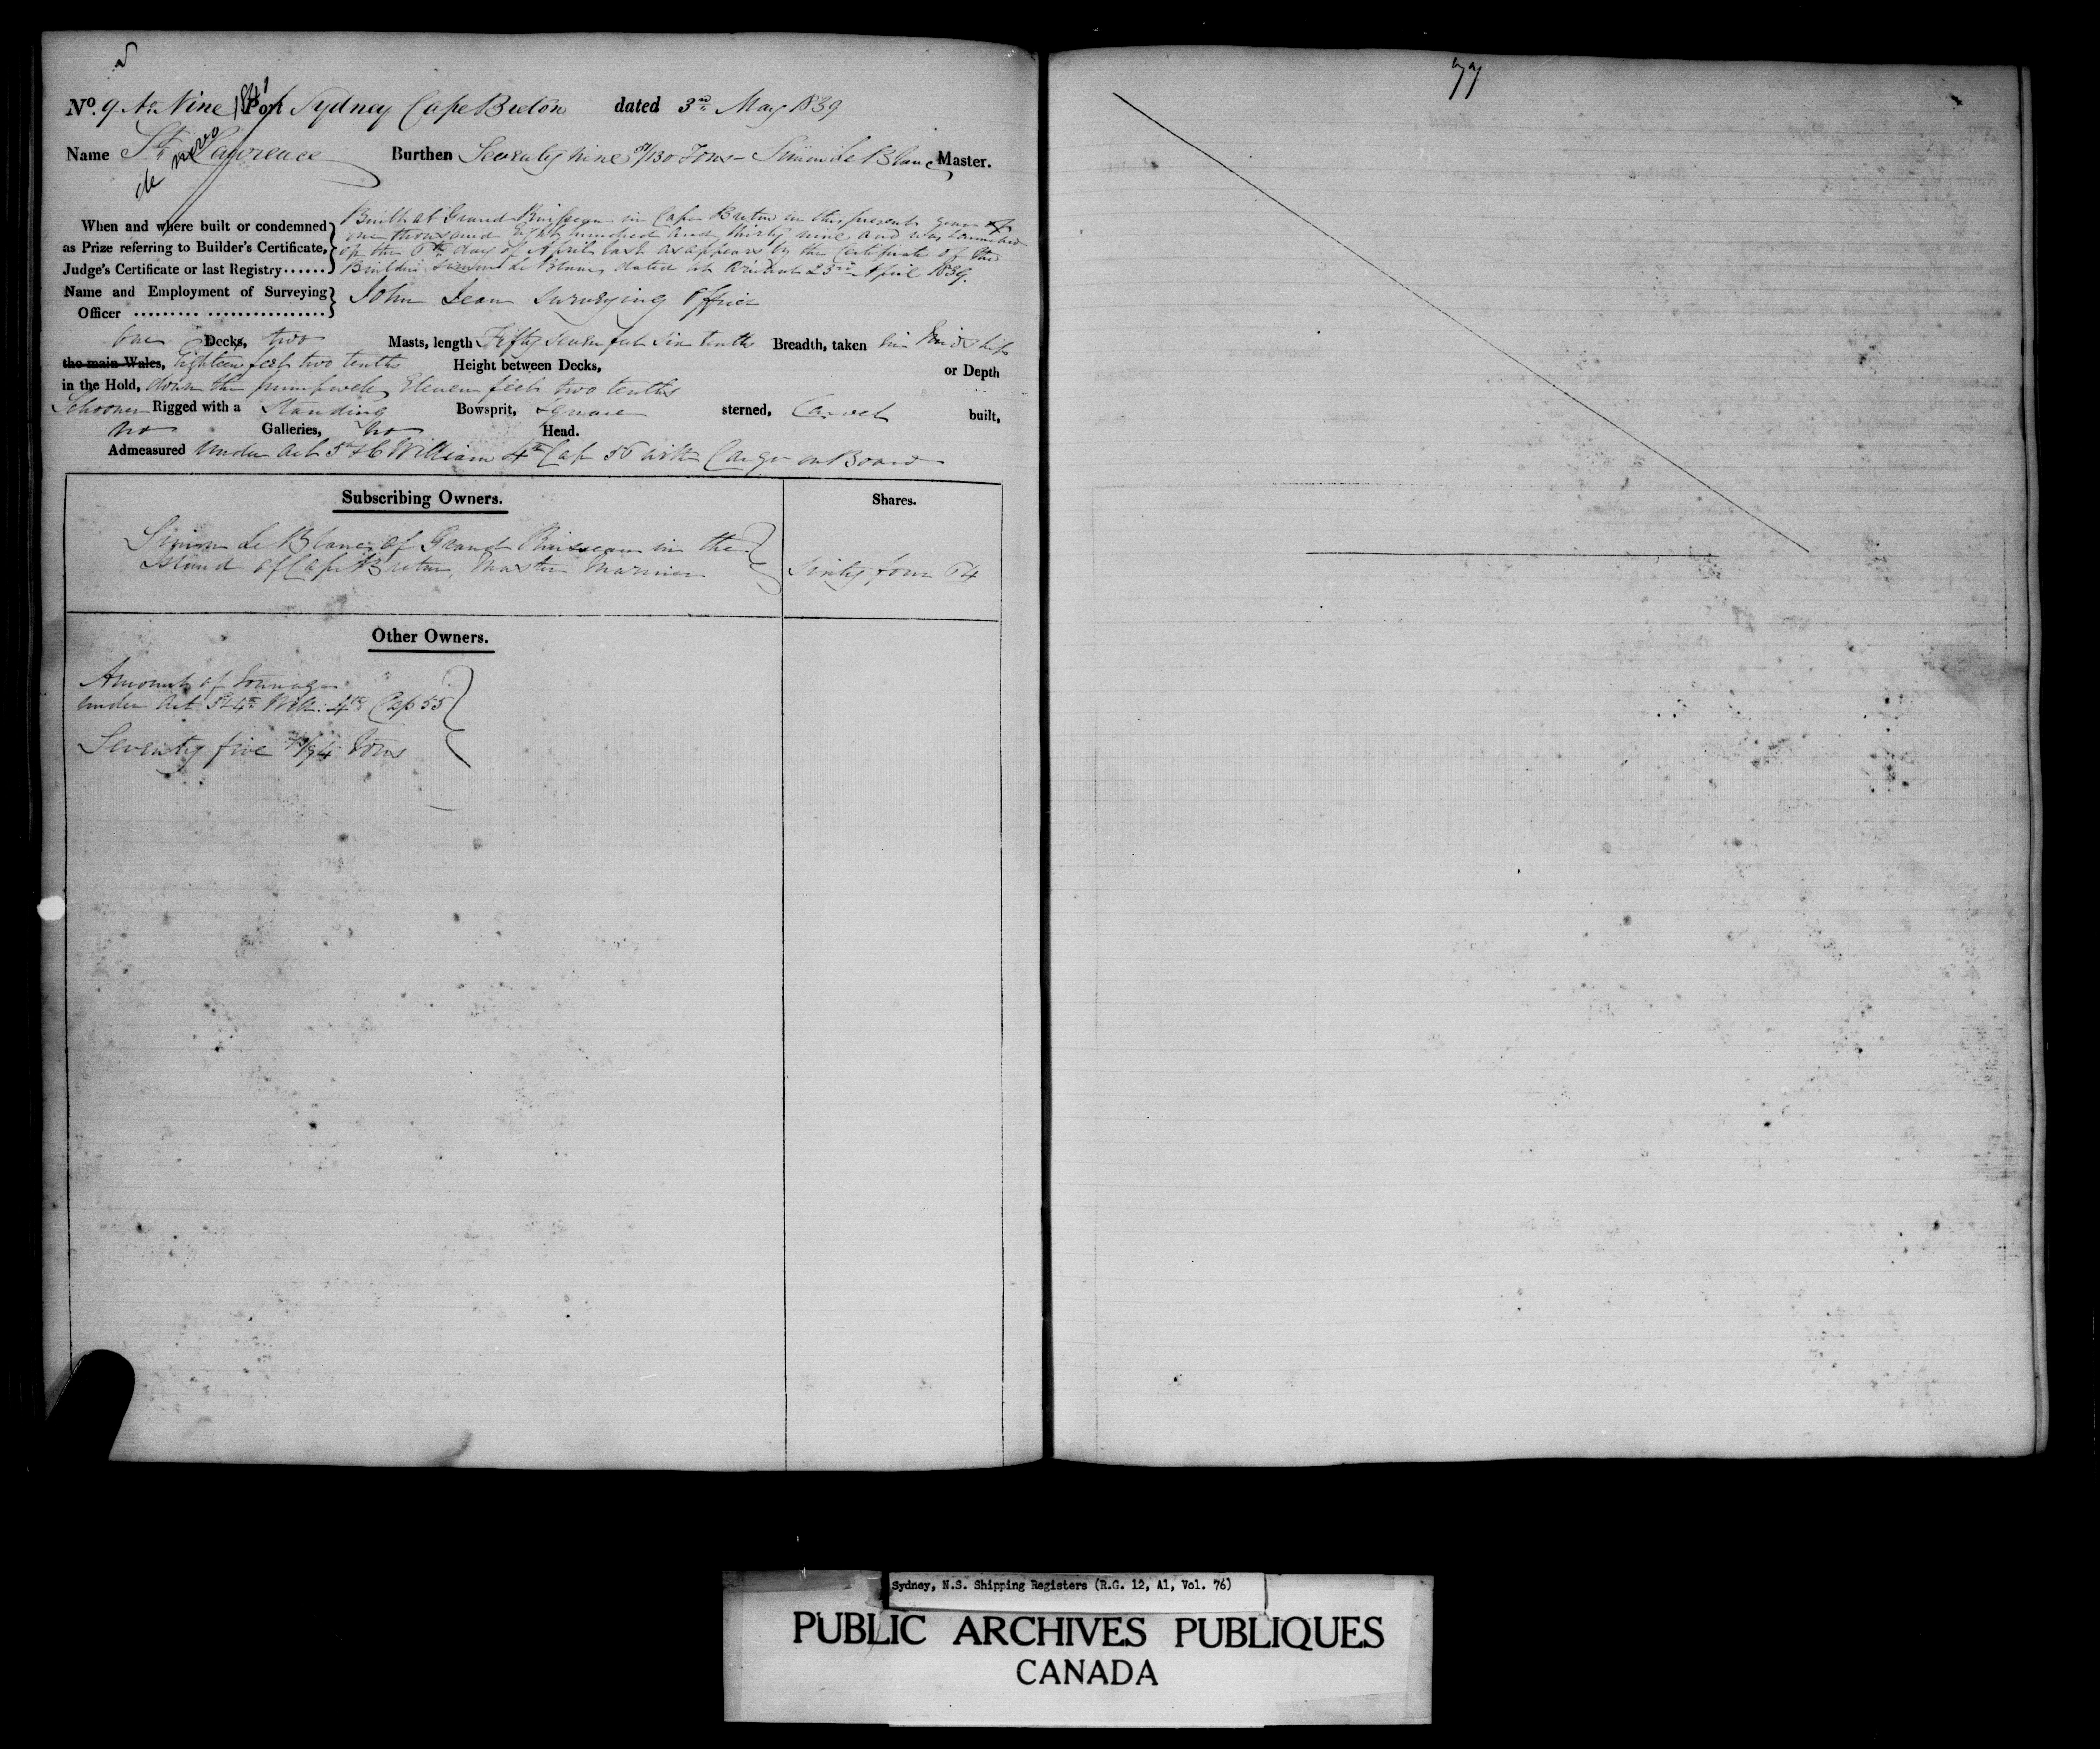 77
No. 9 No. Nine Port Sydney Cape Breton dated 3rd May 1839
de novo 1841
Name St. Lawrence Burthen Seventy nine /130 Tons - Simon Le Blanc Master.
When and where built or condemned
as Prize referring to Builder's Certificate,
Judge's Certificate or last Registry......
Built at Grand Ruisseau in Cape Breton in this present year of
one thousand Eight hundred and thirty nine and was launched
on the 6th day of April last as appears by the Certificate of the
Builder Simon Le Blanc dated at Arichat 23rd April 1839.
Name and Employment of Surveying
Officer ......... ................
John Jean Surveying Officer
One Decks, two Masts, length Fifty seven feet six tenths Breadth, taken in Midships
the main Wales, Eighteen feet two tenths Height between Decks, or Depth
in the Hold, down the pumpwell Eleven feet two tenths
Schooner Rigged with a Standing Bowsprit, Square sterned, Carvel built,
no Galleries, no Head.
Admeasured Under Act 5th & 6 William 4th Cap 56 with Cargo on Board
Subscribing Owners. Shares.
Simon Le Blanc of Grand Ruisseau in the
Island of Cape Breton, Master Mariner Sixty four 64
Other Owners.
Amount of Tonnage
under Act 3 & 4th Will: 4th Cap 55
Seventy five /94 Tons
Sydney, N.S. Shipping Registers (R.G. 12, A1, Vol. 76)
PUBLIC ARCHIVES PUBLIQUES
CANADA